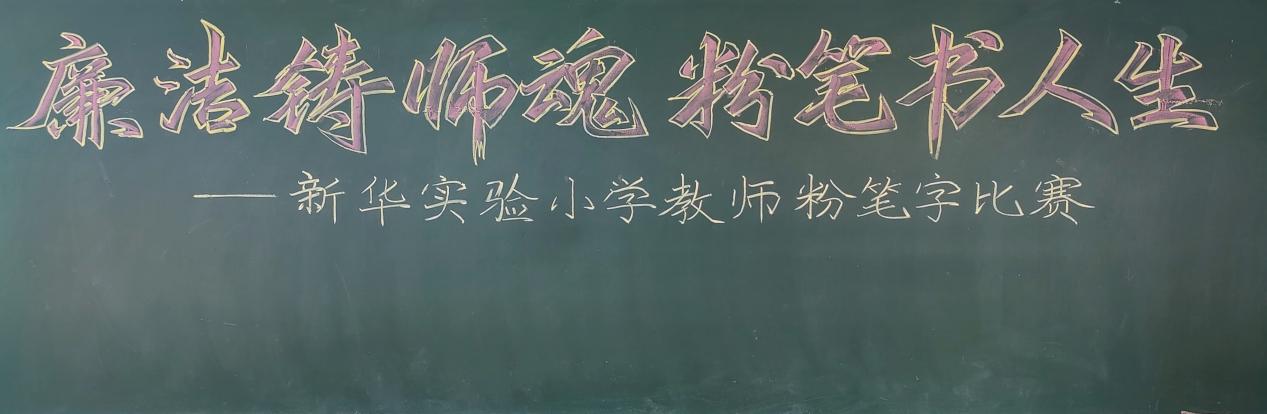 廉洁铸师魂 粉笔书人生
——新华实验小学教师粉笔字比赛